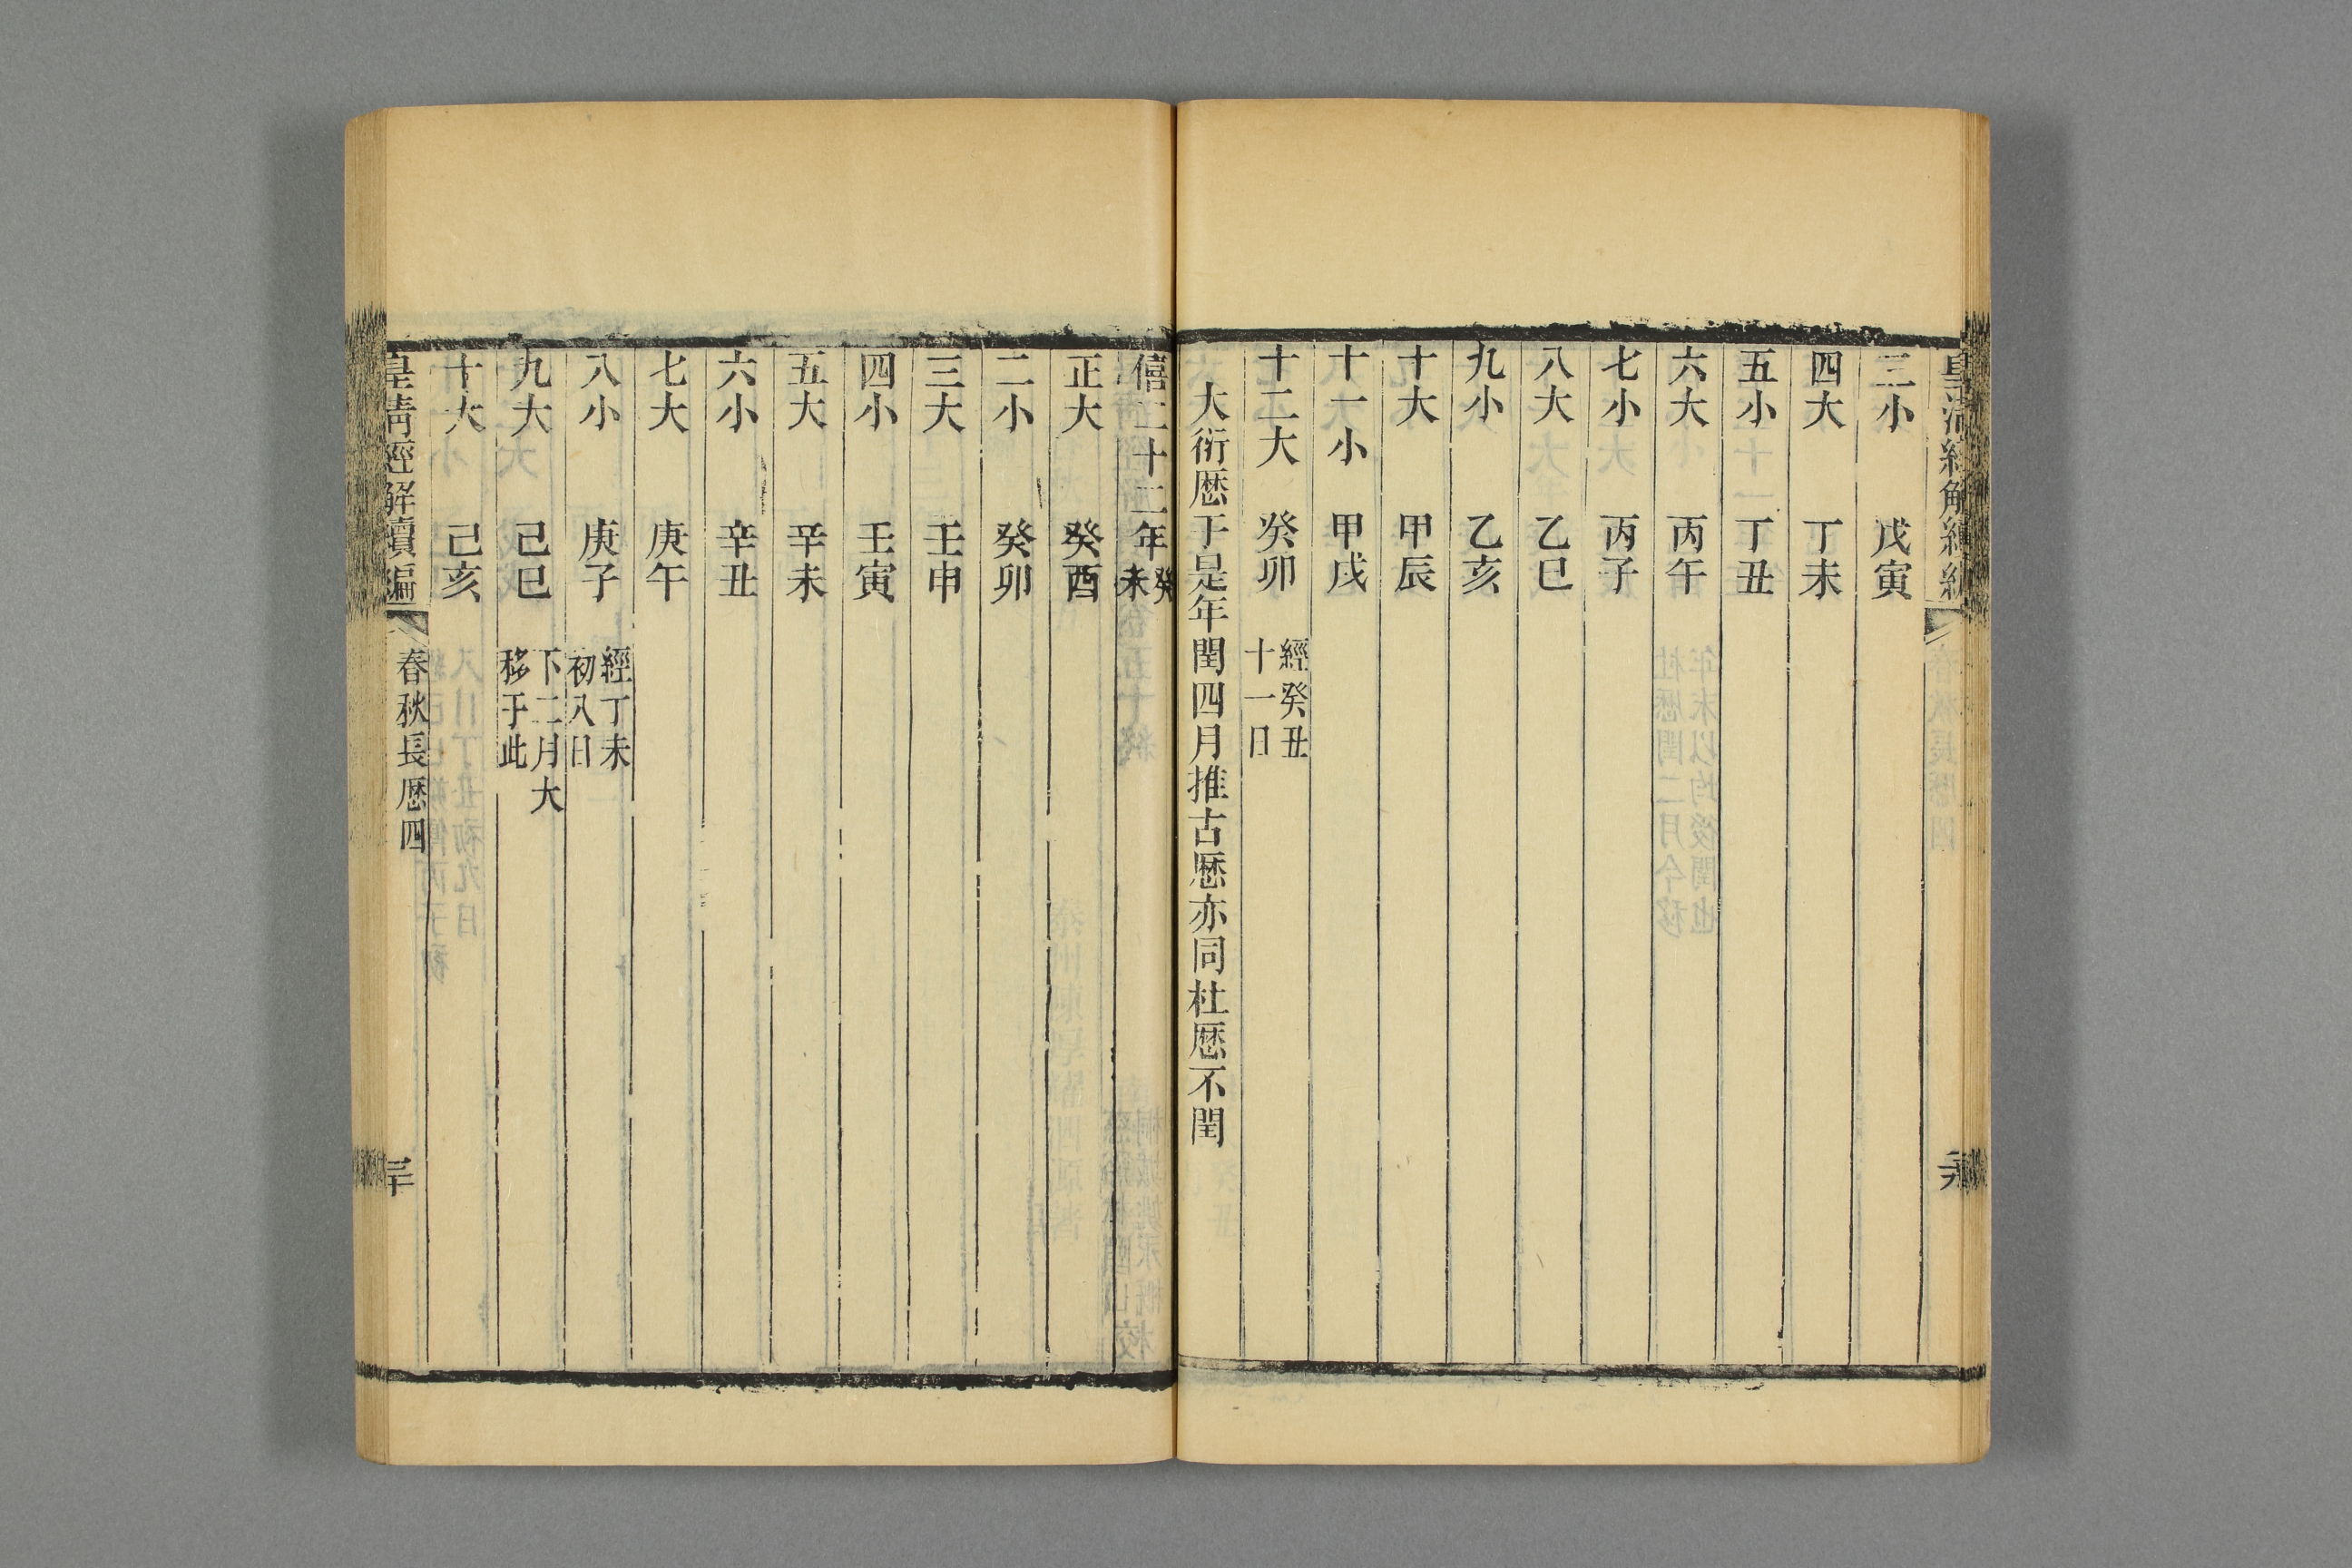 三小 戊寅
四大 丁未
五小 丁丑
六大 丙午
七小 丙子
八大 乙巳
九小 乙亥
十大 甲辰
十一小 甲戌
十二大 癸卯 經癸丑
十一日
大衍厯于是年閏四月推古厯亦同杜厯不閏
僖二十二年癸
未
正大 癸酉
二小 癸卯
三大 壬申
四小 壬寅
五大 辛未
六小 辛丑
七大 庚午
八小 庚子 經丁未
初八日
九大 己巳 下二月大
移于此
十大 己亥
皇清經解續編 春秋長厯四 三十